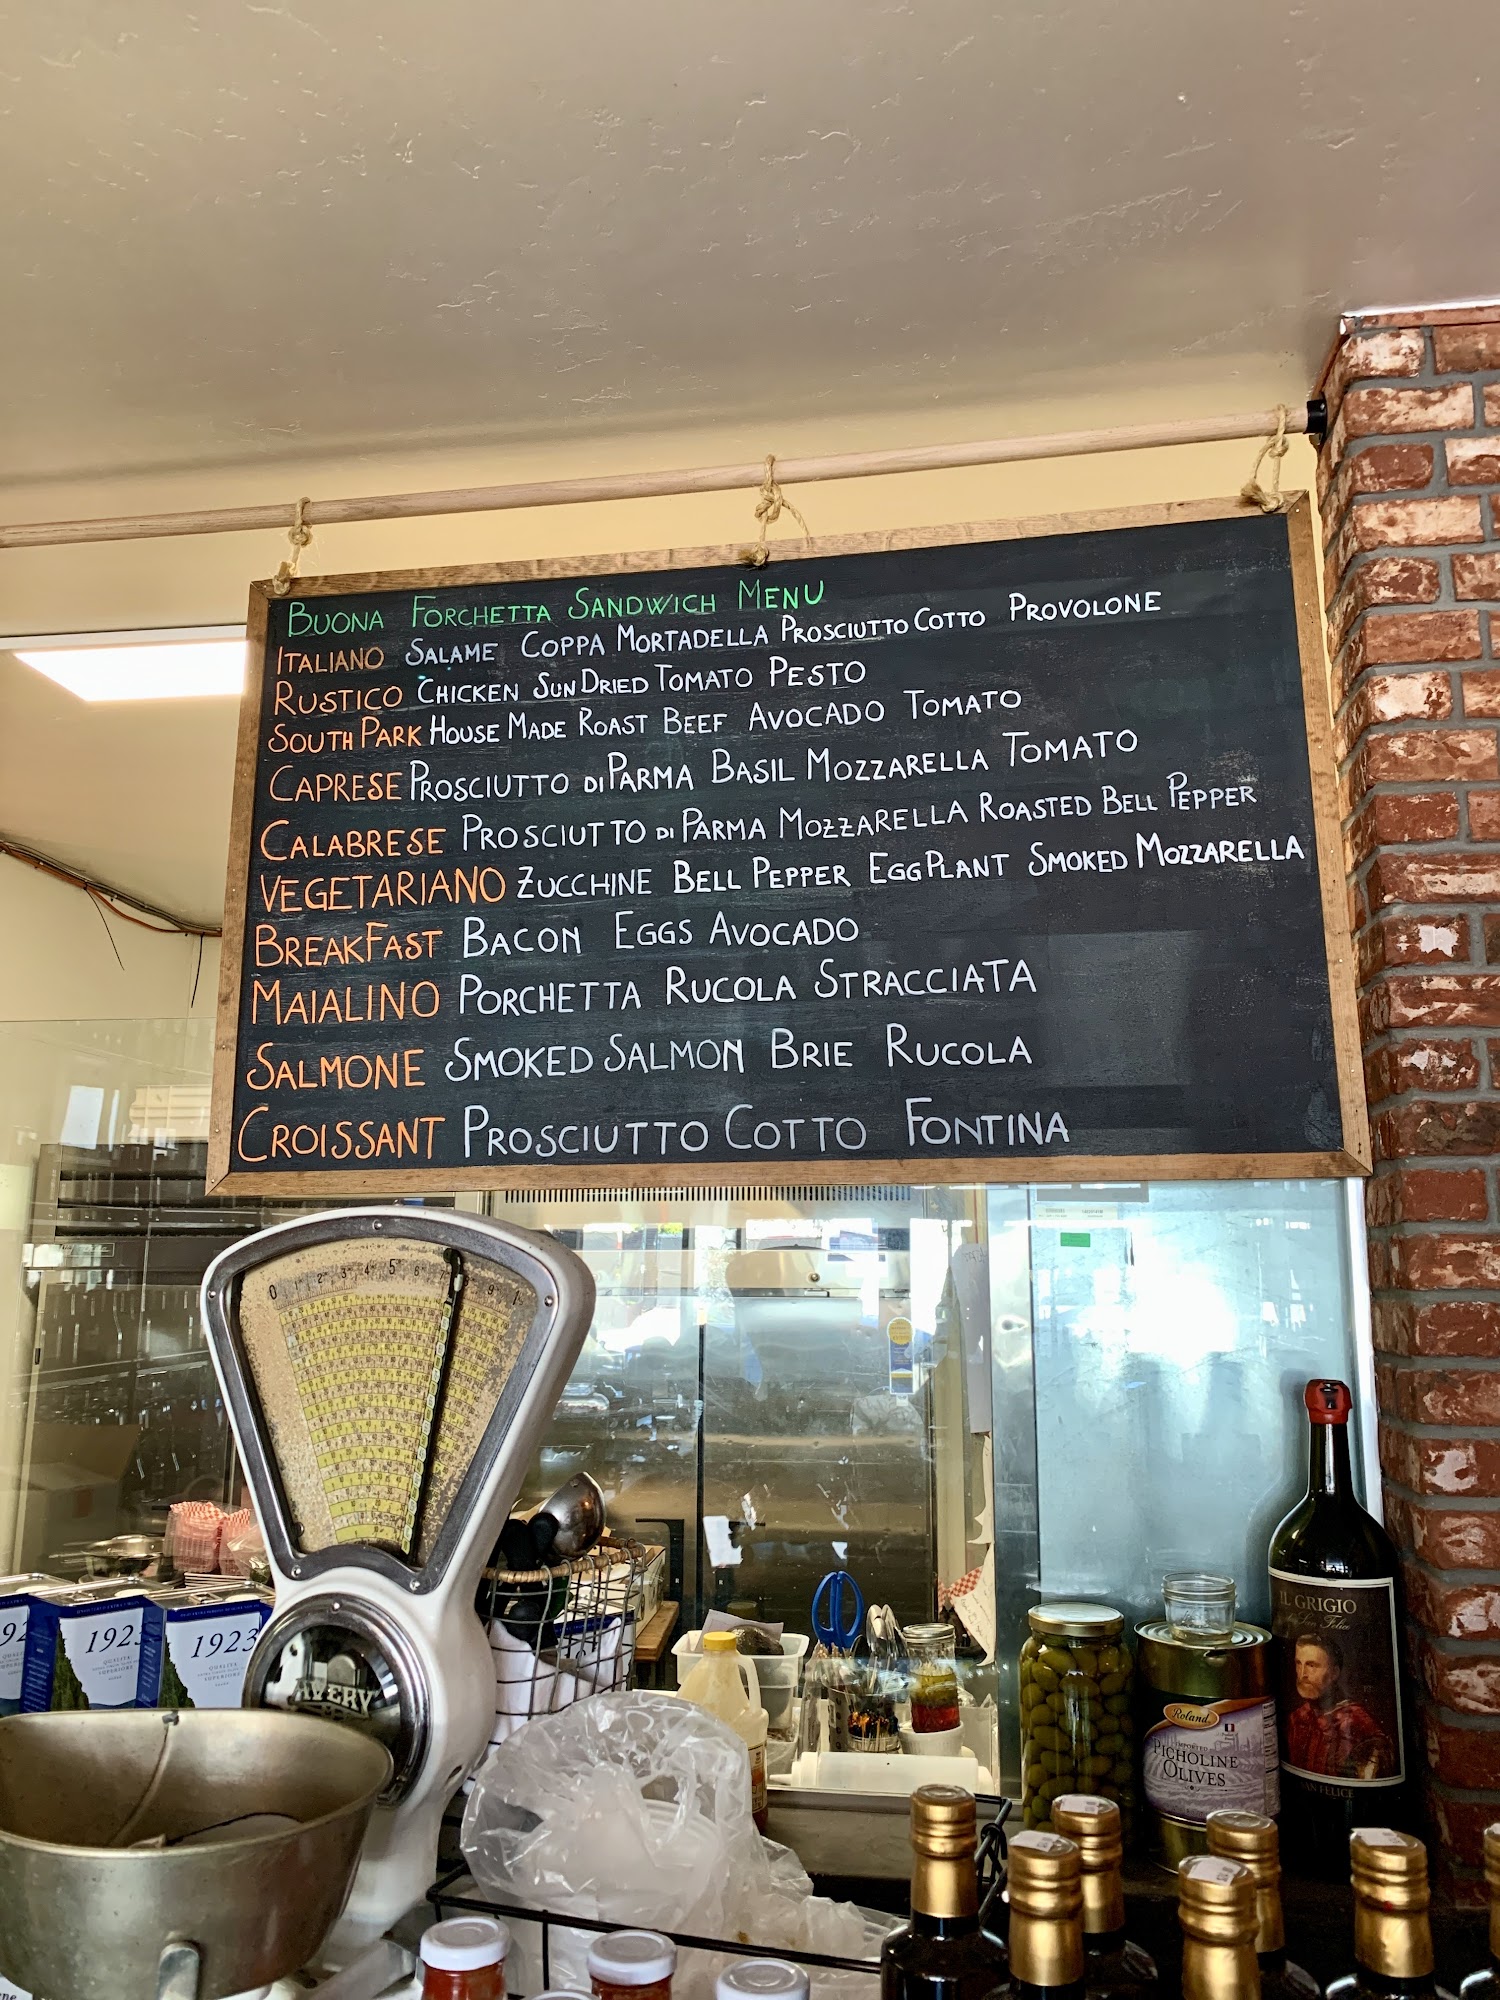 BUONA FORCHETTA SANDWICH MENU
ITALIANO SALAME COPPA MORTADELLA PROSCIUTTO COTTO PROVOLONE
RUSTICO CHICKEN SUN DRIED TOMATO PESTO
SOUTH PARK HOUSE MADE ROAST BEEF AVOCADO TOMATO
CAPRESE PROSCIUTTO DI PARMA BASIL MOZZARELLA TOMATO
CALABRESE PROSCIUTTO DI PARMA MOZZARELLA ROASTED BELL PEPPER
VEGETARIANO ZUCCHINE BELL PEPPER EGGPLANT SMOKED MOZZARELLA
BREAKFAST BACON EGGS AVOCADO
MAIALINO PORCHETTA RUCOLA STRACCIATA
SALMONE SMOKED SALMON BRIE RUCOLA
CROISSANT PROSCIUTTO COTTO FONTINA
0 1 2 3 4 5 6 7 9 1
AVERY
1923
1923
SUPERIORE
IL GRIGIO
da San Felice
SAN FELICE
Roland
IMPORTED
PICHOLINE
OLIVES